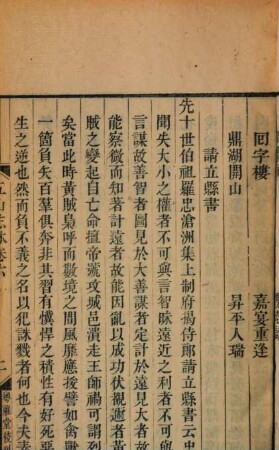 回字樓　嘉宴重逢
鼎湖開山　昇平人瑞
請立縣書
先十世伯祖羅忠滄洲集上制府揭侍郞請立縣書云忠
聞失大小之權者不可與言智眛遠近之利者不可與
言謀故善智者圖見於大善謀者定計於遠見大者故
能察微而知著計遠者故能因亂以成功伏覩逋者黃
賊之變起自亡命擅帝號攻城邑潰走王師禍可謂烈
矣當此時黃賊梟呼而數境之間風靡應援譬如禽獸
一箇負矢百羣俱奔非其習有懻悍之積性有好死惡
生之逆也然而負不義之名以犯詠戮者何也今夫素
五山志林卷六
二
粤雅堂校刊